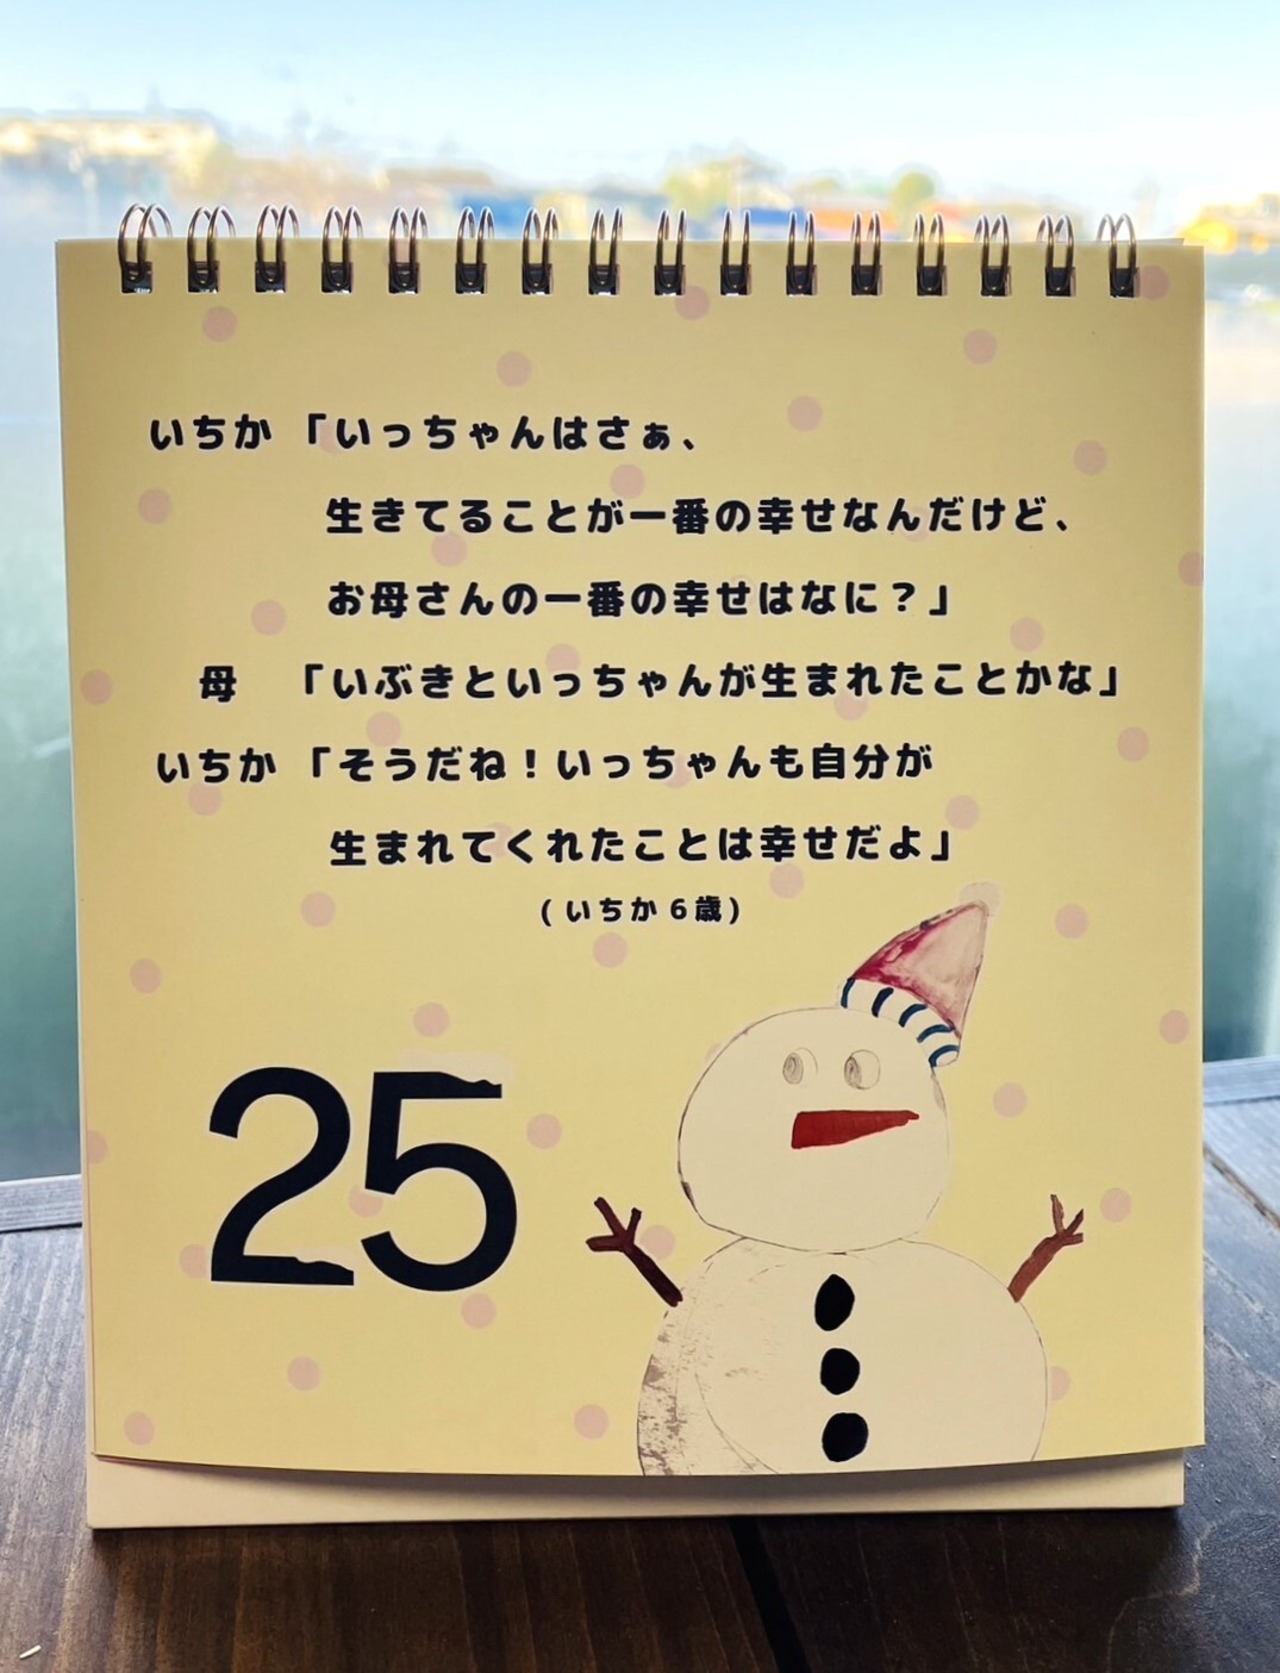 いちか「いっちゃんはさぁ、
生きてることが一番の幸せなんだけど、
お母さんの一番の幸せはなに？」
母「いぶきといっちゃんが生まれたことかな」
いちか「そうだね！いっちゃんも自分が
生まれてくれたことは幸せだよ」
(いちか6歳)
25